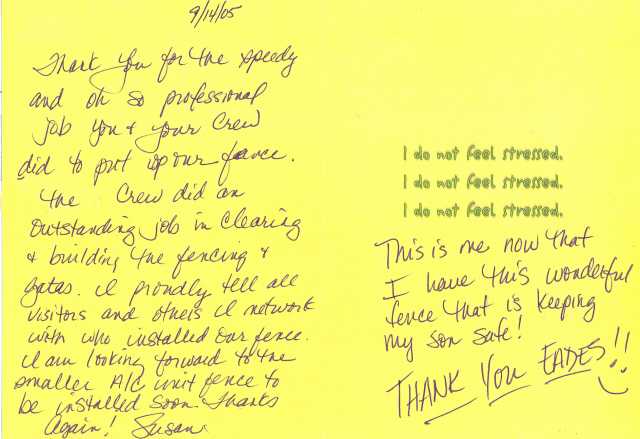 9/14/05
Thank you for the speedy
and oh so professional
job you & your crew
did to put up our fence.
The Crew did an
outstanding job in clearing
& building the fencing &
gates. I proudly tell all
visitors and others I network
with who installed our fence.
I am looking forward to the
smaller A/C unit fence to
be installed soon. Thanks
Again! Susan
I do not feel stressed.
I do not feel stressed.
I do not feel stressed.
This is me now that
I have this wonderful
fence that is keeping
my son safe!
THANK YOU EADES!!